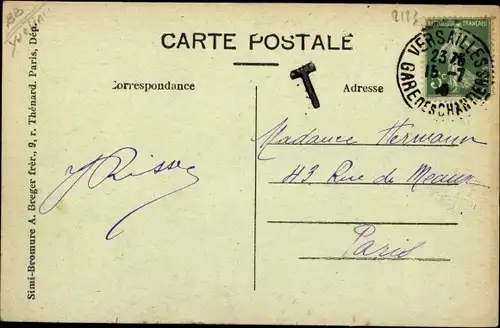 CARTE POSTALE
Correspondance
Adresse
T
VERSAILLES
23 26
15 -7
GARE DES CHANTIERS
Madame Hermann
43 Rue de Meaux
Paris
Simi-Bromure A. Breger frèr., 9, r. Thénard. Paris, Dép.